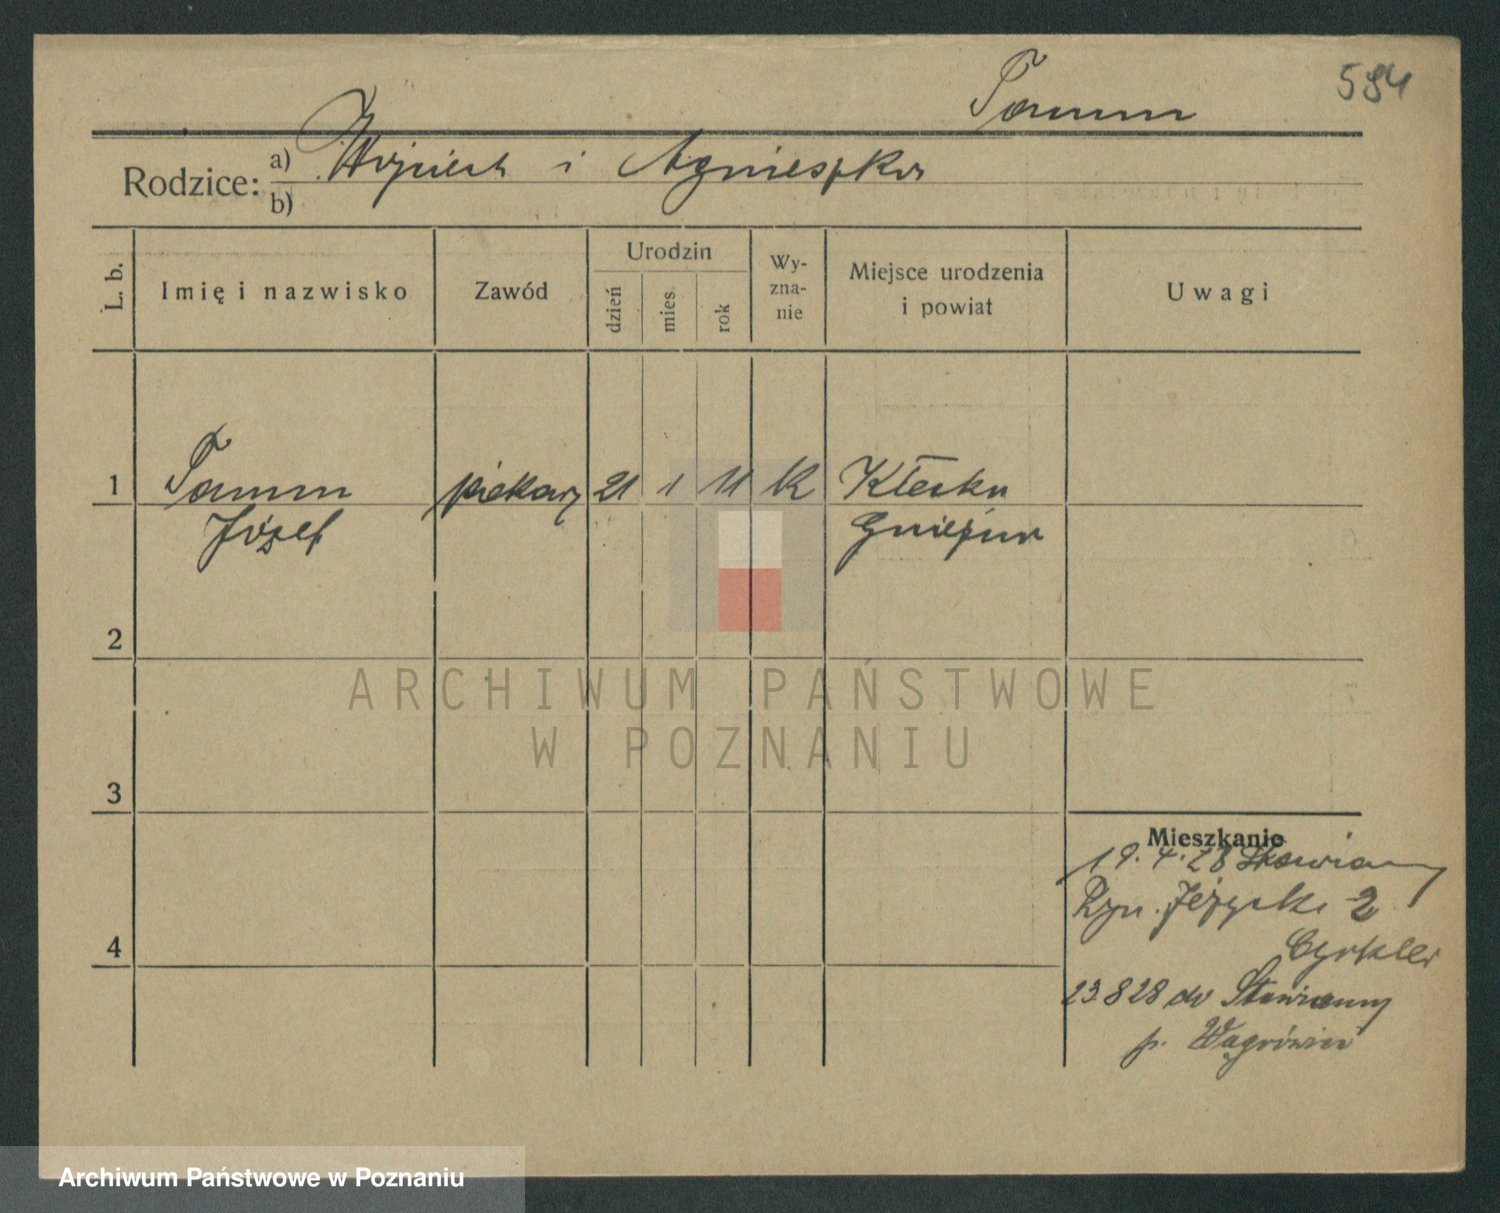 584
Tamm
Rodzice: a) Wojciech i Agnieszka
b)
L. b.
Imię i nazwisko
Zawód
Urodzin
dzień
mies.
rok
Wy-
zna-
nie
Miejsce urodzenia
i powiat
Uwagi
1 Tamm piekarz 21 1 11 k Kłecku
Józef Gniezno
2
3
4
Mieszkanie
19.4.28 Stawiany
Ryn. Jeżycki 2
Cyrkler
23.8 28 do Stawiany
p. Wągrowiec
ARCHIWUM PAŃSTWOWE
W POZNANIU
Archiwum Państwowe w Poznaniu